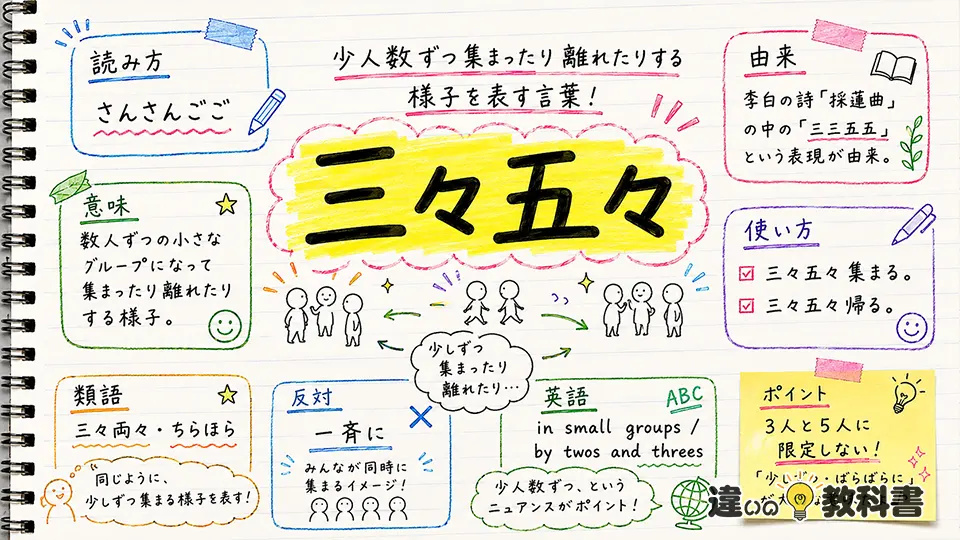 読み方
さんさんごご
少人数ずつ集まったり離れたりする
様子を表す言葉！
由来
李白の詩「採蓮曲」
の中の「三三五五」
という表現が由来。
三々五々
意味
数人ずつの小さな
グループになって
集まったり離れたり
する様子。
使い方
三々五々 集まる。
三々五々 帰る。
少しずつ
集まったり
離れたり…
類語
三々両々・ちらほら
同じように、
少しずつ集まる様子を表す！
反対
一斉に
みんなが同時に
集まるイメージ！
英語
ABC
in small groups /
by twos and threes
少人数ずつ、という
ニュアンスがポイント！
ポイント
3人と5人に
限定しない！
「少しずつ・ばらばらに」
違いの教科書